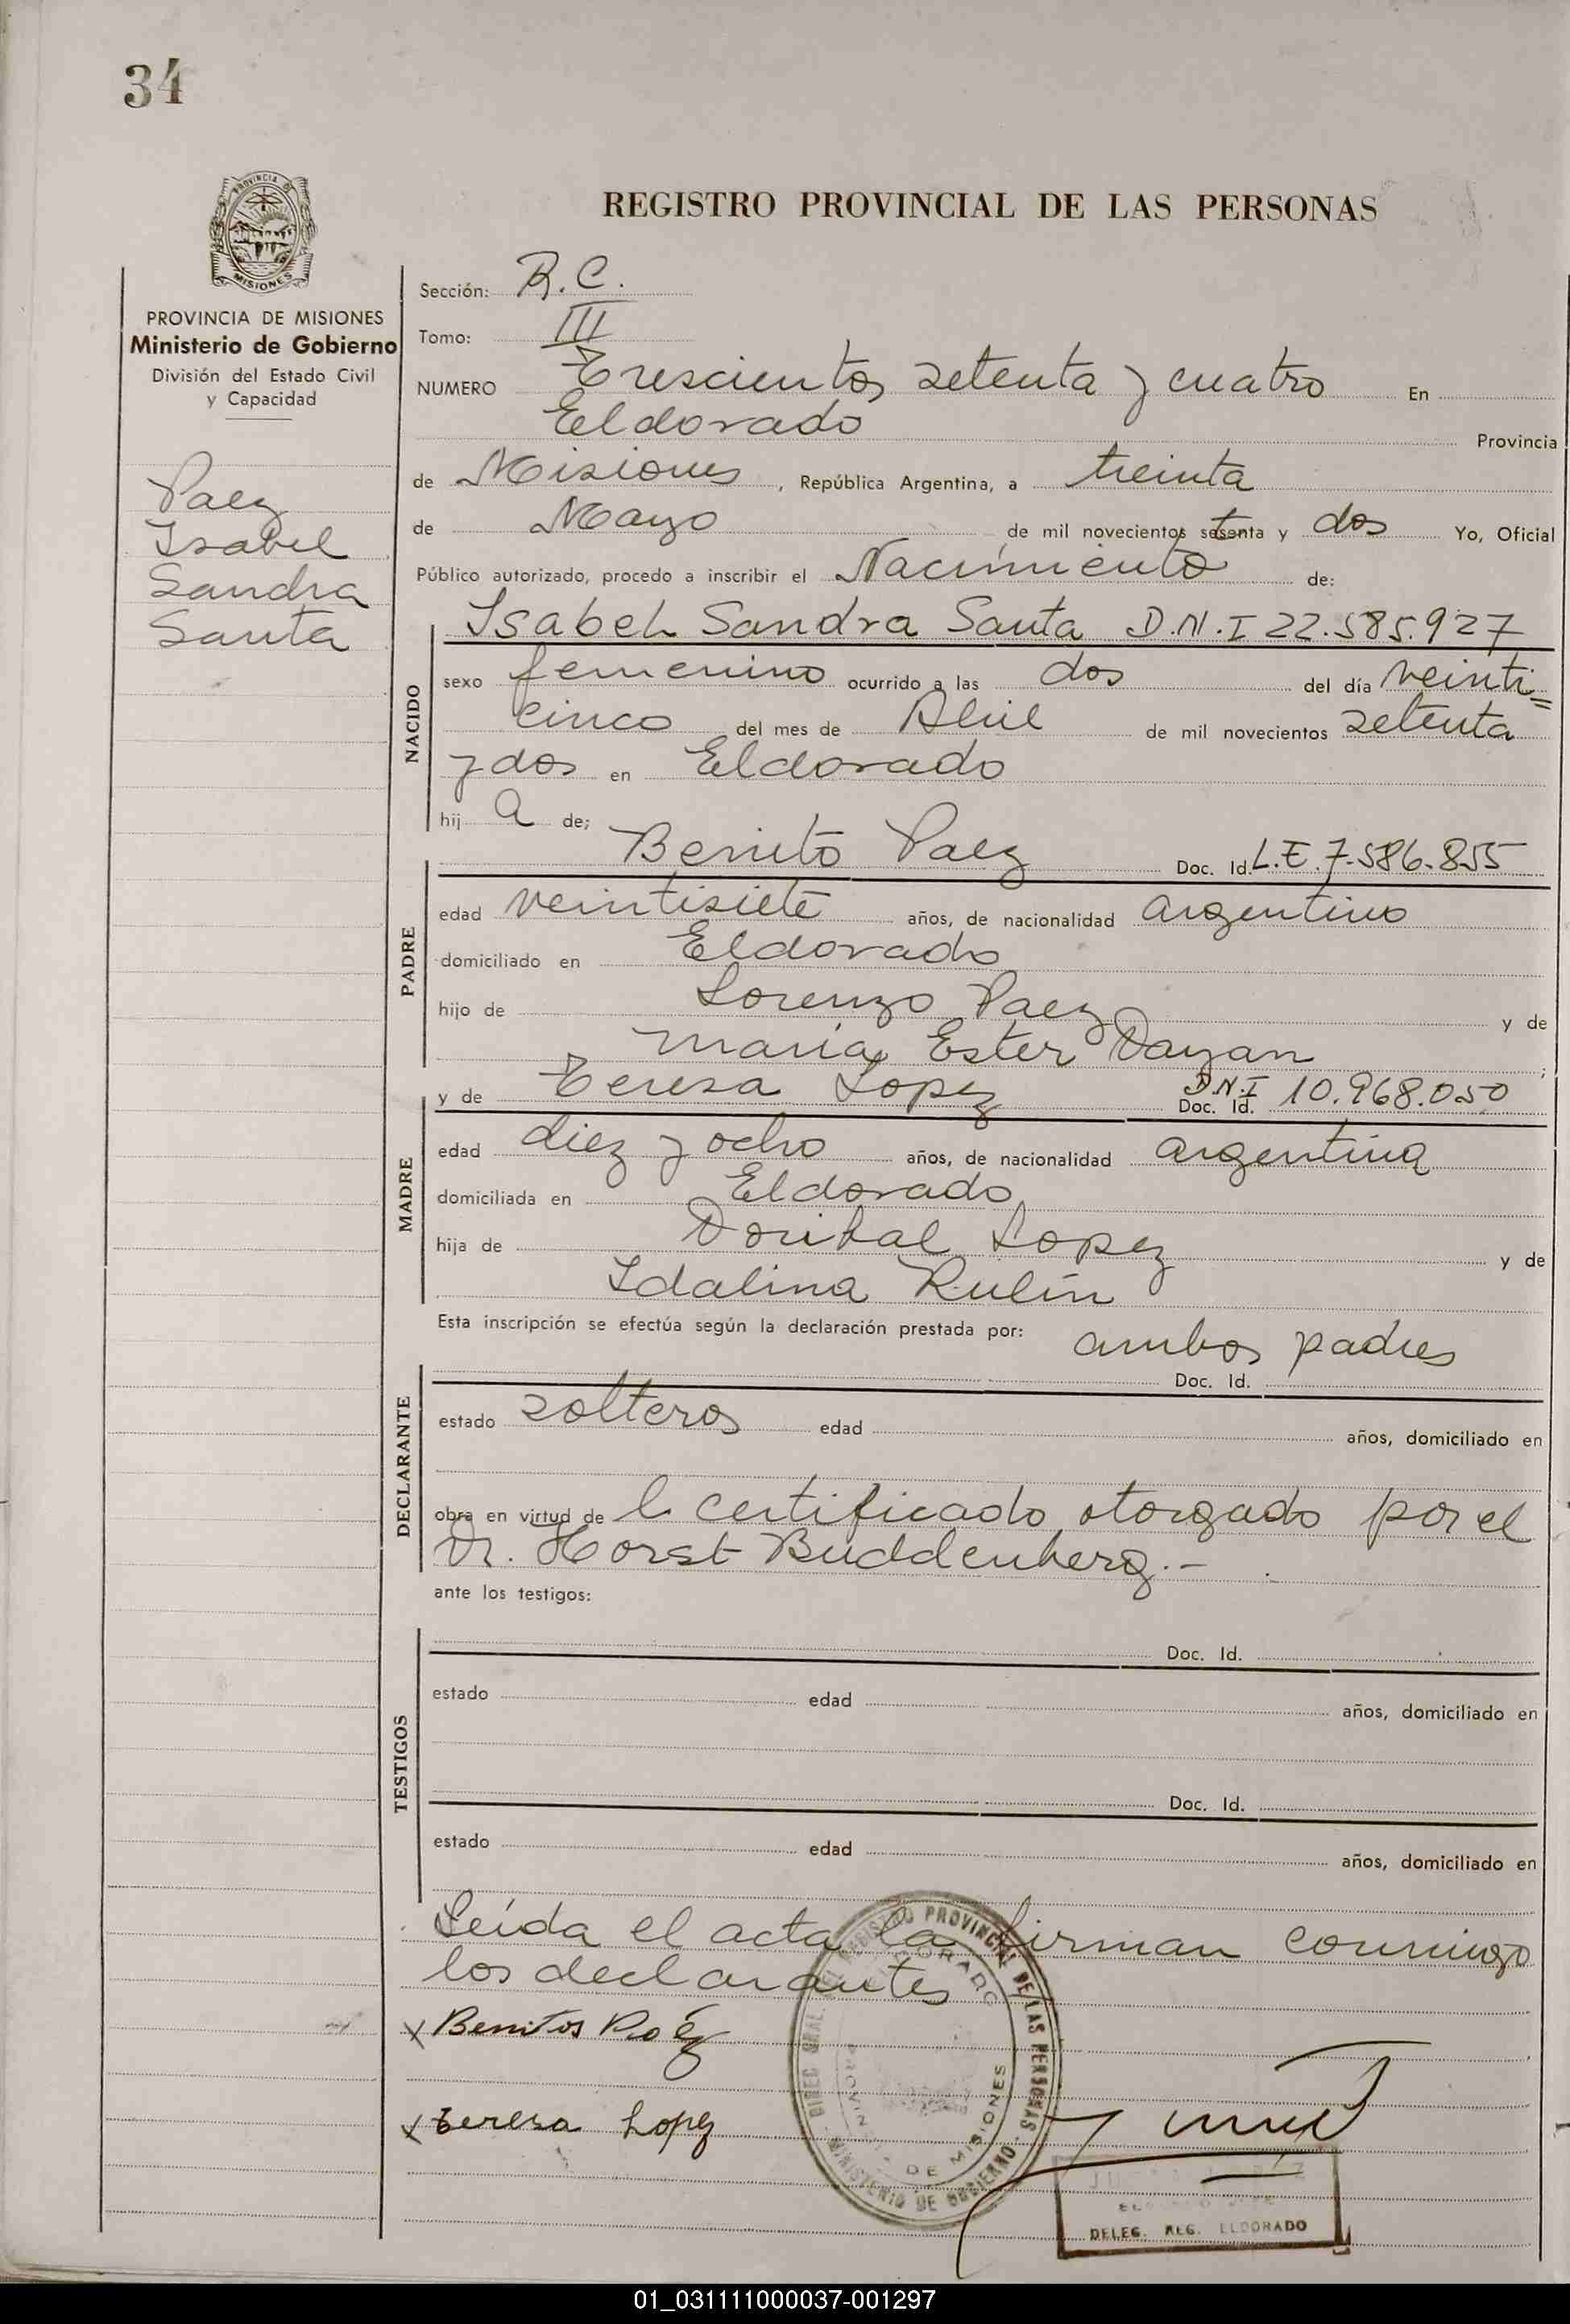 34
PROVINCIA DE
MISIONES
REGISTRO PROVINCIAL DE LAS PERSONAS
PROVINCIA DE MISIONES
Ministerio de Gobierno
División del Estado Civil
y Capacidad
Paez
Isabel
Sandra
Santa
Sección: R.C.
Tomo: III
NUMERO Trescientos setenta y cuatro En
Eldorado Provincia
de Misiones, República Argentina, a treinta
de Mayo de mil novecientos setenta y dos Yo, Oficial
Público autorizado, procedo a inscribir el Nacimiento de:
Isabel Sandra Santa D.N.I 22.585.927
NACIDO
sexo femenino ocurrido a las dos del día veinti=
cinco del mes de Abril de mil novecientos setenta
y dos en Eldorado
hij a de;
Benito Paez Doc. Id. L.E. 7.586.855
PADRE
edad veintisiete años, de nacionalidad argentino
domiciliado en Eldorado
hijo de Lorenzo Paez y de
María Ester Dayan
y de Teresa Lopez D.N.I Doc. Id. 10.968.050
MADRE
edad diez y ocho años, de nacionalidad argentina
domiciliada en Eldorado
hija de Lopez y de
Idalina Rulín
Esta inscripción se efectúa según la declaración prestada por: ambos padres
Doc. Id.
DECLARANTE
estado solteros edad años, domiciliado en
obra en virtud de l certificado otorgado por el
Dr. Horst Buddenberg.-
ante los testigos:
Doc. Id.
TESTIGOS
estado edad años, domiciliado en
Doc. Id.
estado edad años, domiciliado en
Leída el acta la firman conmigo
los declarantes
x Benitos Paéz
x Teresa Lopez
DIREC. GRAL. DEL REGISTRO PROVINCIAL DE LAS PERSONAS
MINISTERIO DE GOBIERNO
ELDORADO
PROVINCIA DE MISIONES
DELEG. REG. ELDORADO
01_031111000037-001297